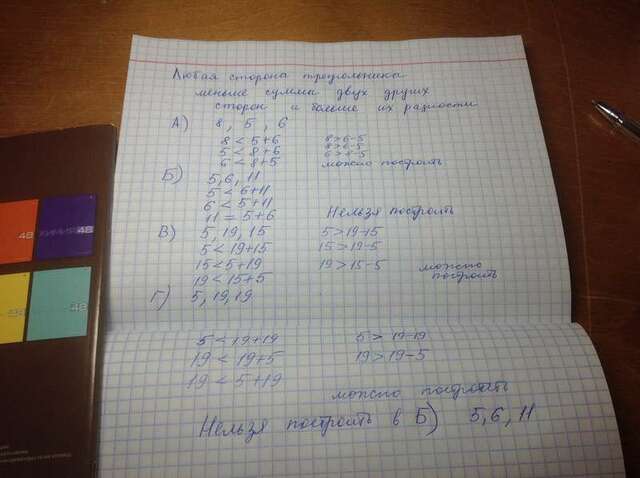 Любая сторона треугольника
меньше суммы двух других
сторон и больше их разности
А) 8, 5, 6
8 < 5+6 8 > 6-5
5 < 8+6 8 > 6-5
6 < 8+5 6 > 8-5
можно построить
Б) 5, 6, 11
5 < 6+11
6 < 5+11
11 = 5+6 Нельзя построить
В) 5, 19, 15 5 > 19-15
5 < 19+15 15 > 19-5
15 < 5+19 19 > 15-5 можно
19 < 15+5 построить
Г) 5, 19, 19
5 < 19+19 5 > 19-19
19 < 19+5 19 > 19-5
19 < 5+19
можно построить
Нельзя построить в Б) 5, 6, 11
48
48
48